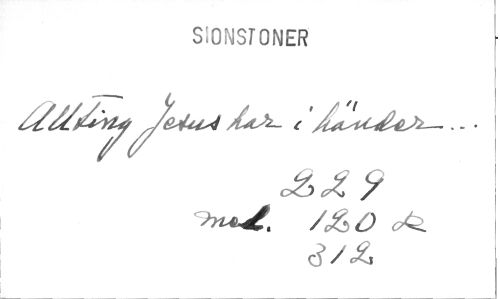 SIONSTONER
Allting Jesus har i händer...
229
mel. 120 &
312